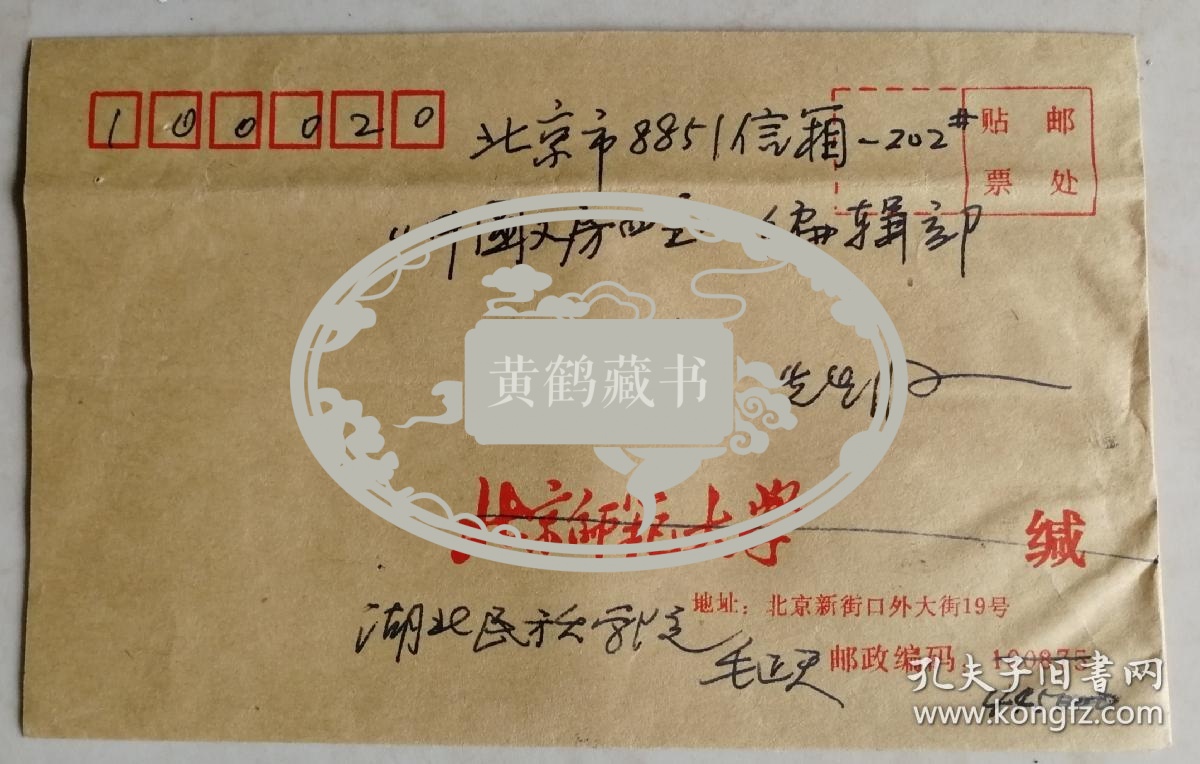 100020
北京市8851信箱-202#
贴 邮
票 处
《中国文房四宝》编辑部
黄鹤藏书
先生收
北京师范大学 缄
地址：北京新街口外大街19号
湖北民族学院
邮政编码：100875
孔夫子旧书网
www.kongfz.com